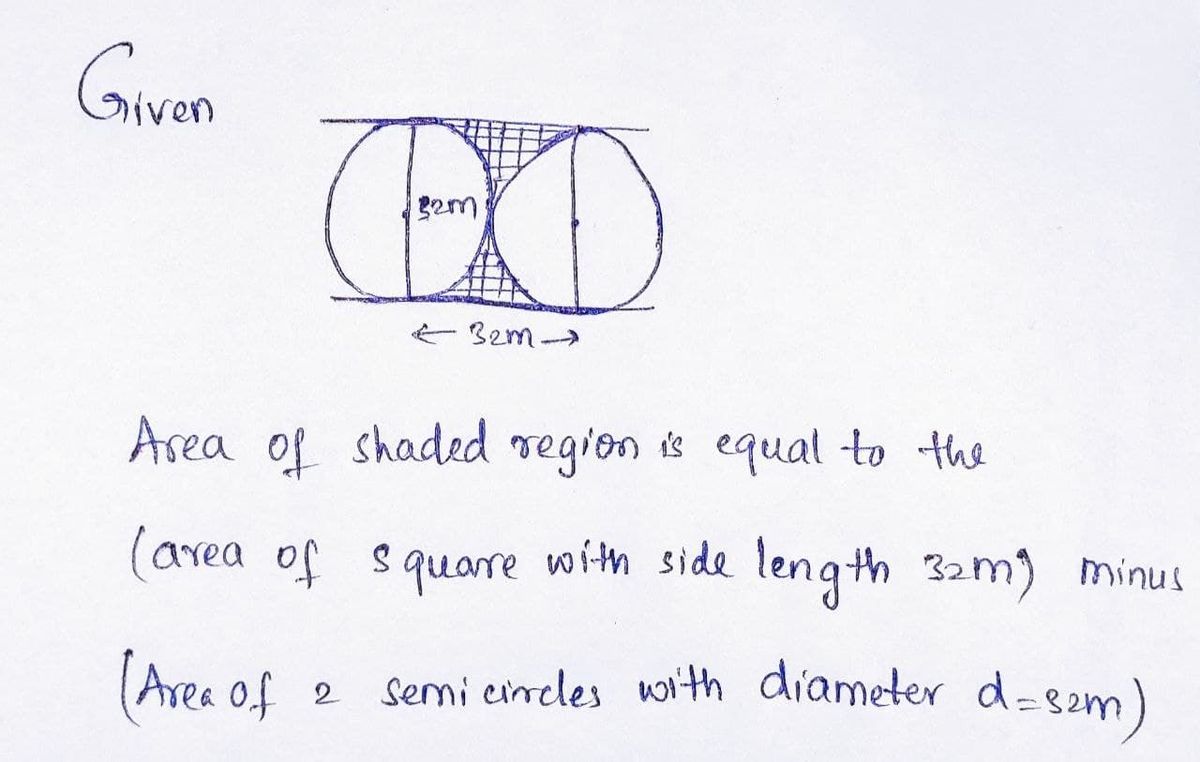 Given
32m
← 32m →
Area of shaded region is equal to the
(area of square with side length 32m) minus
(Area of 2 semicircles with diameter d=32m)